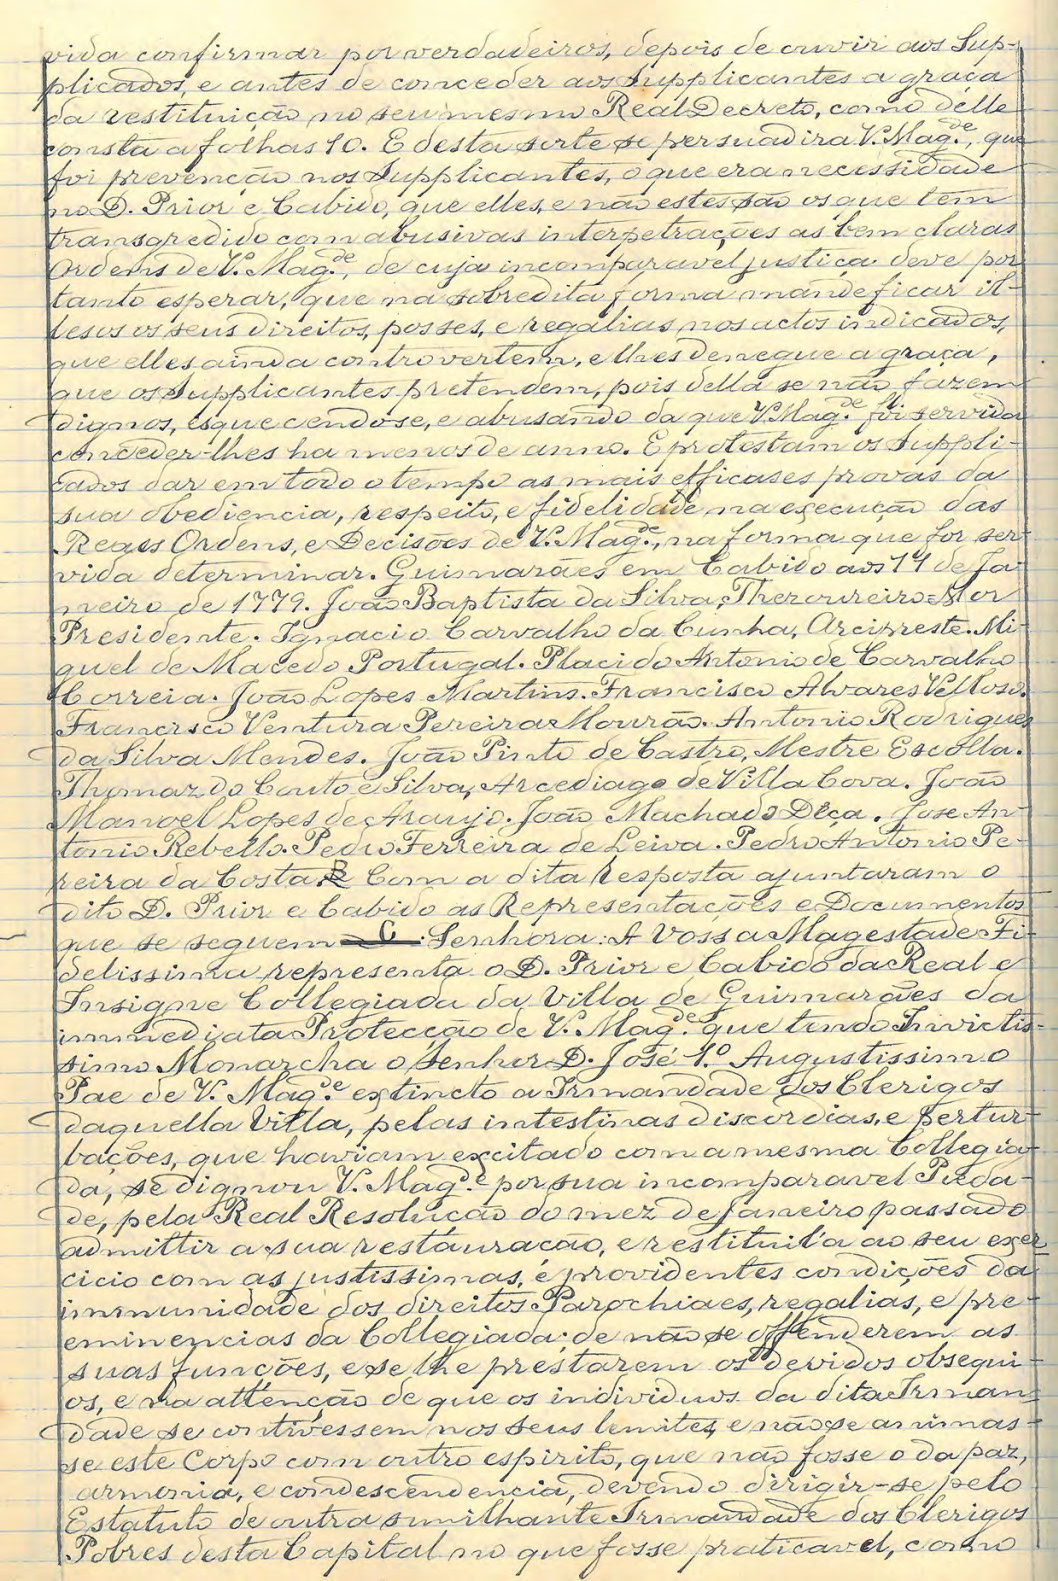 vida confirmar por verdadeiros, depois de ouvir aos Sup-
plicados, e antes de conceder aos Supplicantes a graça
da restituição no seu mesmo Real Decreto, como delle
consta a folhas 10. E desta sorte se persuadira V. Mag.de, que
foi prevenção nos Supplicantes, o que era necessidade
no D. Prior e Cabido, que elles, e não estes são os que tem
transgredido com abusivas interpetrações as bem claras
Ordens de V. Mag.de, de cuja incomparavel justiça deve por
tanto esperar, que na sobredita forma mande ficar il-
lesos os seus direitos, posses, e regalias nos actos indicados,
que elles ainda controvertem, e lhes denegue a graça,
que os Supplicantes pretendem, pois della se não fazem
dignos, esquecendo-se, e abusando da que V. Mag.de foi servida
conceder-lhes ha menos de anno. E protestam os Suppli-
cados dar em todo o tempo as mais efficases provas da
sua obediencia, respeito, e fidelidade na execução das
Regas Ordens, e Decisões de V. Mag.de, na forma que for ser-
vida determinar. Guimarães em Cabido aos 14 de Ja
neiro de 1779. João Baptista da Silva, Thezoureiro-Mor
Presidente. Ignacio Carvalho da Cunha, Arcipreste. Mi-
guel de Macedo Portugal. Placido Antonio de Carvalho
Correia. João Lopes Martins. Francisco Alvares Velloso.
Francisco Ventura Pereira Mourão. Antonio Rodrigues
da Silva Mendes. João Pinto de Castro, Mestre Escolla.
Thomaz do Couto e Silva, Arcediago de Villa Cova. João
Manoel Lopes de Araujo. João Machado Deça. Jose An-
tonio Rebello. Pedro Ferreira de Leiva. Pedro Antonio Pe-
reira da Costa Com a dita resposta ajuntaram o
dito D. Prior e Cabido as Representações e Documentos
que se seguem : Senhora: A Vossa Magestade Fi-
delissima representa o D. Prior e Cabido da Real e
Insigne Collegiada da Villa de Guimarães da
immediata Protecção de V. Mag.de que tendo o Invictis-
simo Monarcha o Senhor D. José 1.º Augustissimo
Pae de V. Mag.de extincto a Irmandade dos Clerigos
daquella Villa, pelas intestinas discordias, e pertur-
bações, que haviam excitado com a mesma Collegia-
da, se dignou V. Mag.de por sua incomparavel Pieda-
de, pela Real Resolução do mez de Janeiro passado
admittir a sua restauração, e restituil'a ao seu exer
cicio com as justissimas, e providentes condições da
immunidade dos direitos Parochiaes, regalias, e pre-
eminencias da Collegiada; de não se offenderem as
suas funções, e se lhe prestarem os devidos obsequi-
os, e na attenção de que os individuos da dita Irman-
dade se contivessem nos seus lemites, e não se animas-
se este Corpo com outro espirito, que não fosse o da paz,
armonia, e condescendencia, devendo dirigir-se pelo
Estatuto de outra similhante Irmandade dos Clerigos
Pobres desta Capital no que fosse praticavel, como